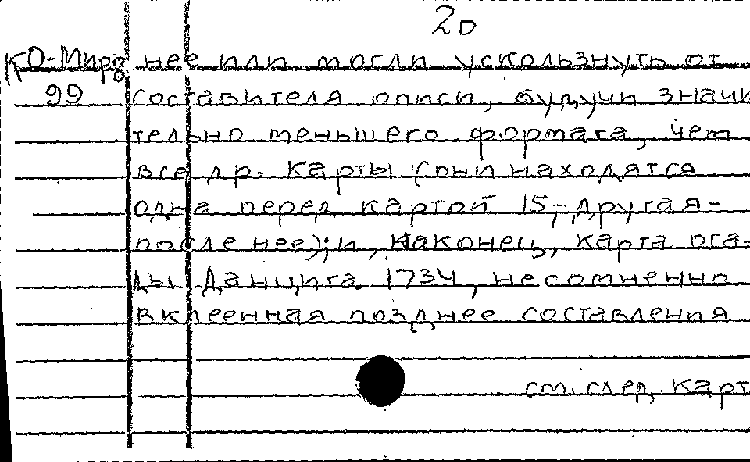 20
КО-Мирз нее или могли ускользнуть от
99 составителя описи, будучи значи
тельно меньшего формата, чем
все др. карты (они находятся
одна перед картой 15,-другая-
после нее); и, наконец, карта оса-
ды Данцига 1734, несомненно
вклеенная позднее составления
см. след. карт